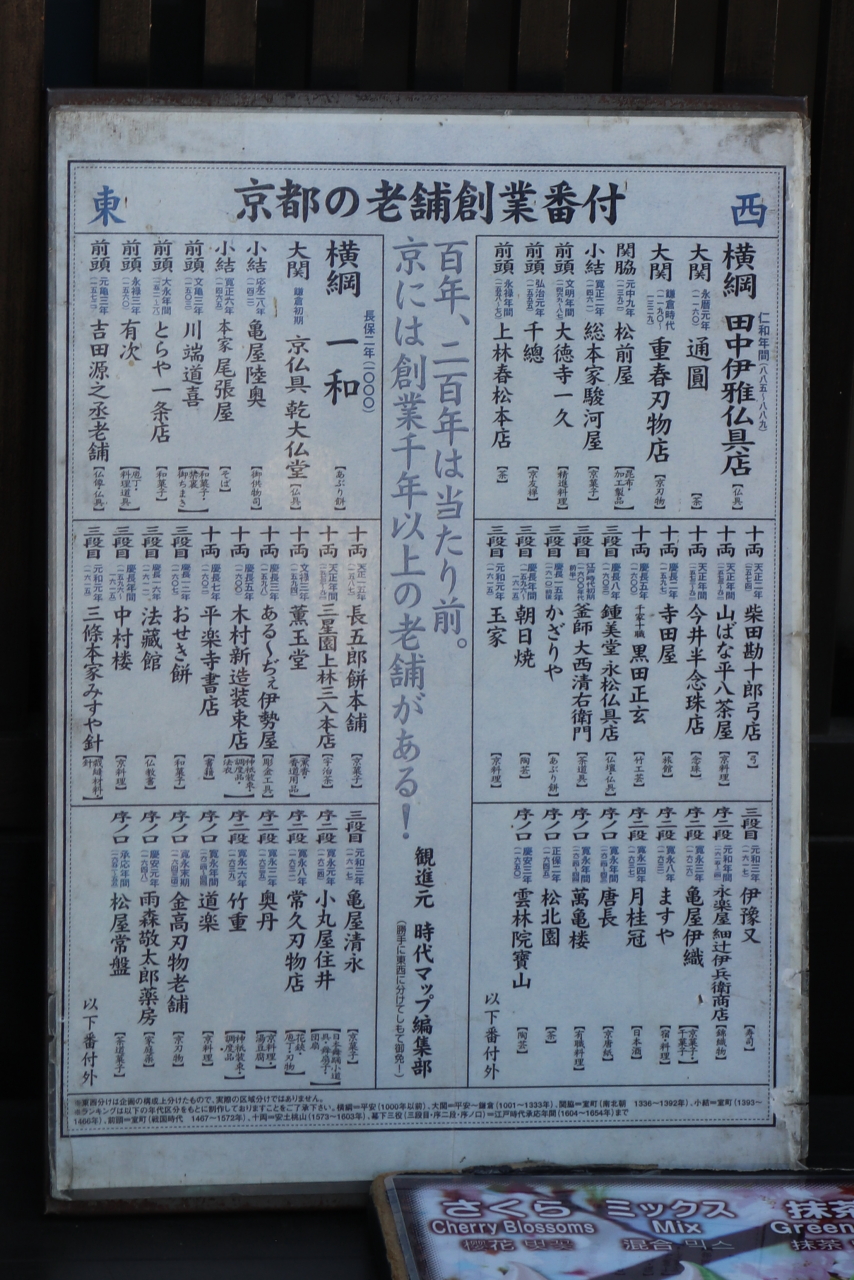 京都の老舗創業番付
西
横綱 仁和年間(八八五～八八九) 田中伊雅仏具店 【仏具】
大関 永暦元年(一一六〇) 通圓 【茶】
大関 鎌倉時代 重春刃物店 【京刃物】
関脇 元中九年(一三九二) 松前屋 【昆布・加工製品】
小結 寛正二年(一四六一) 総本家駿河屋 【京菓子】
前頭 文明年間 大徳寺一久 【精進料理】
前頭 弘治元年(一五五五) 千總 【京友禅】
前頭 永禄年間 上林春松本店 【茶】
十両 天正二年(一五七四) 柴田勘十郎弓店 【弓】
十両 天正年間 山ばな平八茶屋 【京料理】
十両 天正年間 今井半念珠店 【念珠】
十両 慶長二年 寺田屋 【旅館】
十両 慶長五年 千家十職 黒田正玄 【竹工芸】
三段目 慶長八年 鍾美堂 永松仏具店 【仏壇・仏具】
三段目 江戸時代初期 釜師 大西清右衛門 【茶道具】
三段目 慶長年間 かざりや 【あぶり餅】
三段目 慶長年間 朝日焼 【陶芸】
三段目 元和元年(一六一五) 玉家 【京料理】
三段目 元和三年(一六一七) 伊豫又 【寿司】
序二段 元和年間 永楽屋 細辻伊兵衛商店 【綿織物】
序二段 寛永三年 亀屋伊織 【京菓子・干菓子】
序二段 寛永八年 ますや 【宿・料理】
序二段 寛永一四年(一六三七) 月桂冠 【日本酒】
序ノ口 寛永年間 唐長 【京唐紙】
序ノ口 寛永年間 萬亀楼 【有職料理】
序ノ口 正保二年 松北園 【茶】
序ノ口 慶安三年(一六五〇) 雲林院寶山 【陶芸】
以下番付外
百年、二百年は当たり前。
京には創業千年以上の老舗がある！
観進元 時代マップ編集部
(勝手に東西に分けてしもて御免！)
東
横綱 長保二年(一〇〇〇) 一和 【あぶり餅】
大関 鎌倉初期 京仏具 乾大仏堂 【仏具】
小結 応永二八年(一四二一) 亀屋陸奥 【御供物司】
小結 寛正六年(一四六五) 本家 尾張屋 【そば】
前頭 文亀三年(一五〇三) 川端道喜 【和菓子・禁裏御ちまき】
前頭 大永年間 とらや 一条店 【和菓子】
前頭 永禄三年(一五六〇) 有次 【庖丁・料理道具】
前頭 元亀三年(一五七二) 吉田源之丞老舗 【仏壇仏具】
十両 天正一五年(一五八七) 長五郎餅本舗 【京菓子】
十両 天正年間 三星園上林三入本店 【宇治茶】
十両 文禄三年(一五九四) 薫玉堂 【薫香・香道用品】
十両 慶長三年(一五九八) ある〜ぢぇ伊勢屋 【彫金工具】
十両 慶長五年(一六〇〇) 木村新造装束店 【神祇装束・調度品・法衣】
十両 慶長七年(一六〇二) 平楽寺書店 【書籍】
三段目 慶長一二年(一六〇七) おせき餅 【和菓子】
三段目 慶長一六年(一六一一) 法藏館 【仏教書】
三段目 慶長年間 中村楼 【京料理】
三段目 元和元年(一六一五) 三條本家みすや針 【裁縫材料・針】
三段目 元和三年(一六一七) 亀屋清永 【京菓子】
序二段 寛永元年(一六二四) 小丸屋住井 【日本舞踊小道具・舞扇子・団扇】
序二段 寛永八年(一六三一) 常久刃物店 【花鋏・庖丁刃物】
序二段 寛永一二年(一六三五) 奥丹 【京料理・湯豆腐】
序二段 寛永一六年(一六三九) 竹重 【神祇装束・調度品】
序ノ口 寛永年間 道楽 【京料理】
序ノ口 寛永末期 金高刃物老舗 【京刃物】
序ノ口 慶安元年(一六四八) 雨森敬太郎薬房 【家庭薬】
序ノ口 承応年間 松屋常盤 【茶道菓子】
以下番付外
※東西分けは企画の構成上分けたもので、実際の区域分けではありません。
※ランキングは以下の年代区分をもとに制作しておりますことをご了承下さい。横綱＝平安(1000年以前)、大関＝平安〜鎌倉(1001〜1333年)、関脇＝室町(南北朝 1336〜1392年)、小結＝室町(1393〜
1466年)、前頭＝室町(戦国時代 1467〜1572年)、十両＝安土桃山(1573〜1603年)、幕下三役(三段目・序二段・序ノ口)＝江戸時代承応年間(1604〜1654年)まで
さくら ミックス 抹茶
Cherry Blossoms Mix Green
櫻花 벚꽃 混合 믹스 抹茶